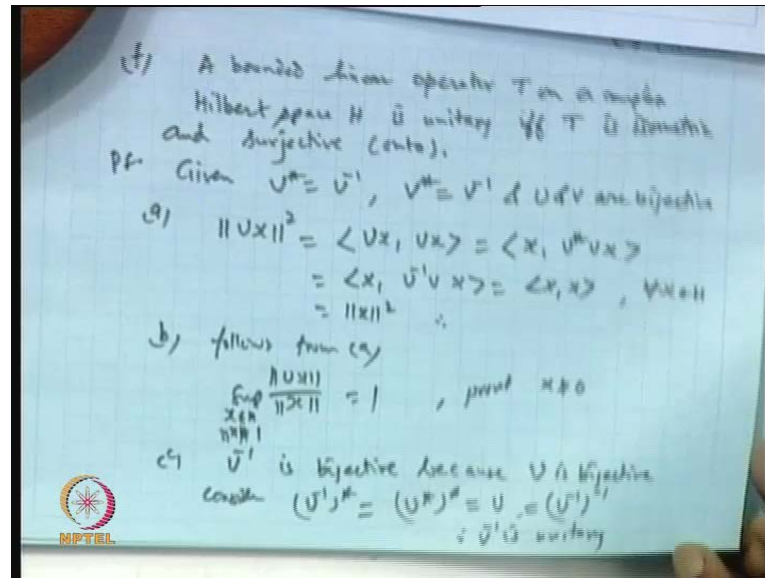 (f) A bounded linear operator T on a complex
Hilbert space H is unitary iff T is isometric
and surjective (onto).
Pf Given U* = U⁻¹, V* = V⁻¹ & U & V are bijective
a) ||Ux||² = <Ux, Ux> = <x, U*Ux>
= <x, U⁻¹Ux> = <x, x>, ∀x∈H
= ||x||² ∴
b) follows from (a)
Sup ||Ux|| / ||x|| = 1, x≠0
x∈H
c) U⁻¹ is bijective because U is bijective
Consider (U⁻¹)* = (U*)* = U = (U⁻¹)⁻¹
∴ U⁻¹ is unitary
NPTEL